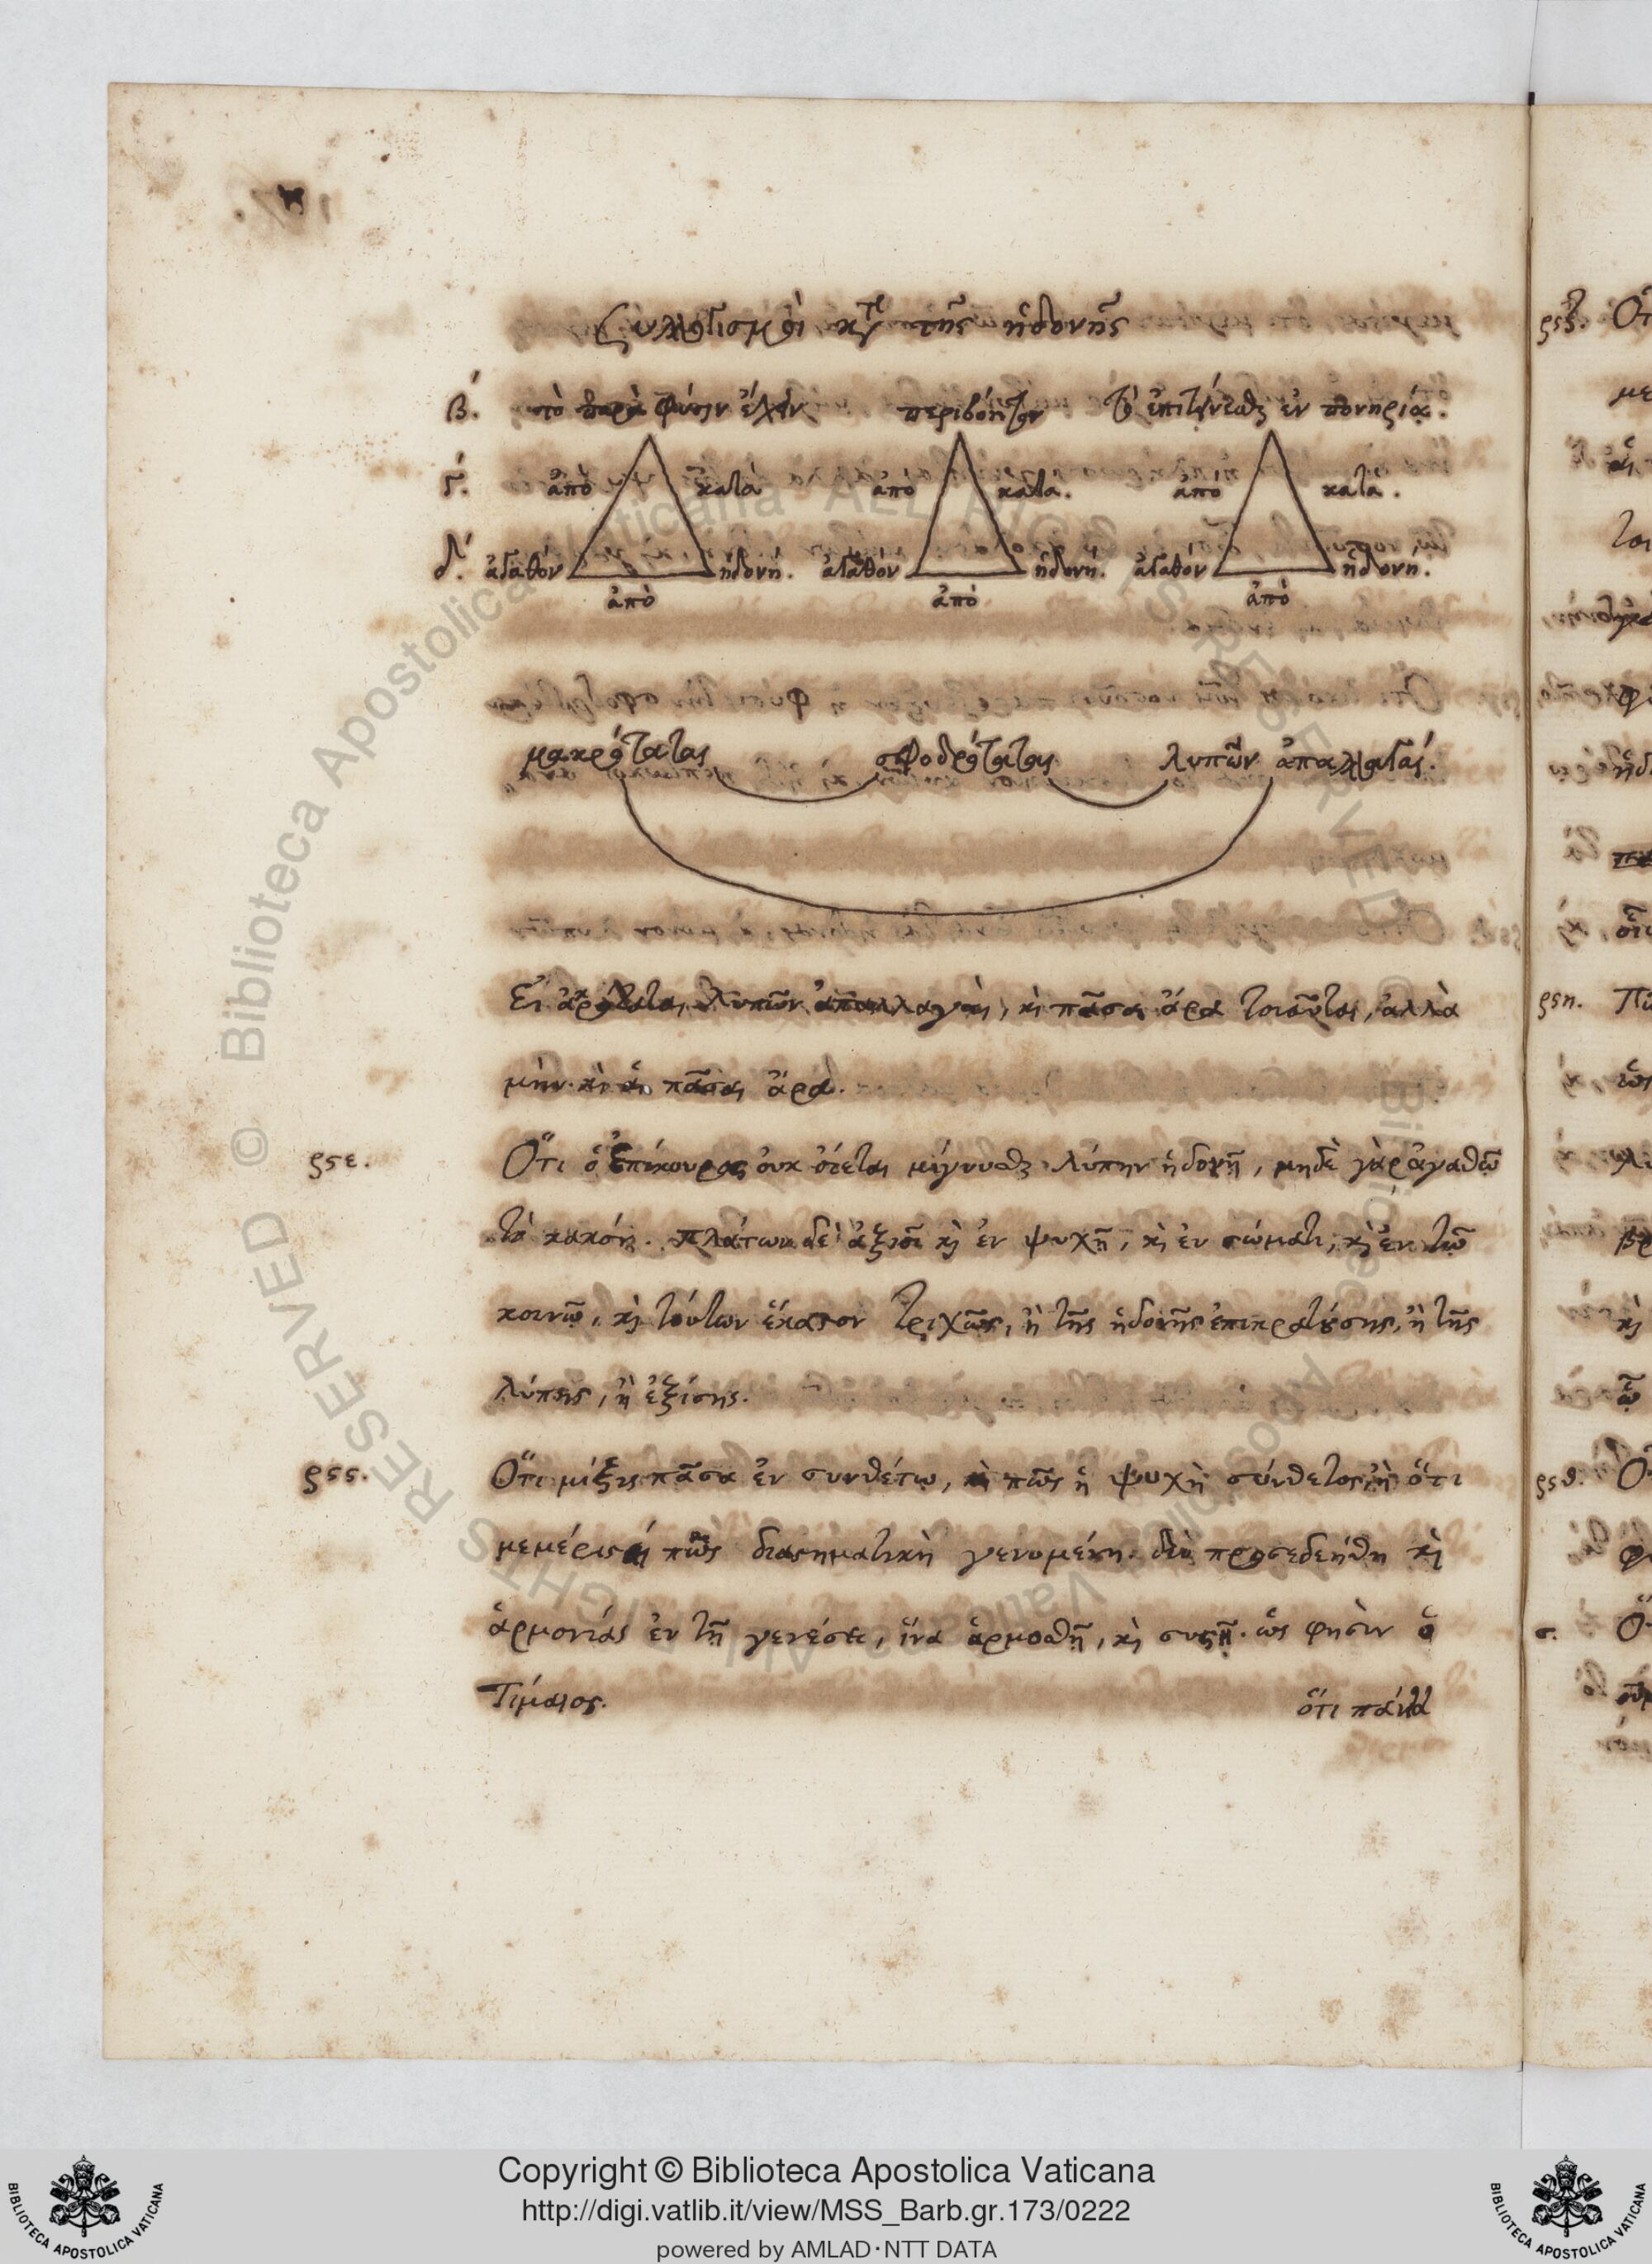 Συλλογισμοὶ κατὰ τῆς ἡδονῆς
β΄. τὸ παρὰ φύσιν ἔχειν περιβόητον τὸ ἐπιτείνεσθαι ἐν πονηρίᾳ.
γ΄. ἀπὸ κατὰ ἀπὸ κατὰ. ἀπὸ κατὰ.
δ΄. ἀγαθόν ἡδονή. ἀγαθόν ἡδονή. ἀγαθόν ἡδονή.
ἀπὸ ἀπὸ ἀπὸ
μακρότατας σφοδρότατας λυπῶν ἀπαλλαγάς.
Εἰ λυπῶν ἀπαλλαγαὶ, κὶ πᾶσαι ἄρα τοιαῦται, ἀλλὰ
μὴν κὶ αἱ πᾶσαι ἄρα.
ϟε. Ὅτι ὁ Ἐπίκουρος οὐκ οἴεται μίγνυσθαι λύπην ἡδονῇ, μηδὲ γὰρ ἀγαθῷ
τὸ κακόν. πλάτων δὲ ἀξιοῖ κὶ ἐν ψυχῇ, κὶ ἐν σώματι, κὶ ἐν τῷ
κοινῷ, κὶ τούτων ἕκαστον τριχῶς, ἢ τῆς ἡδονῆς ἐπικρατούσης, ἢ τῆς
λύπης, ἢ ἐξίσης.
ϟϛ. Ὅτι μίξις πᾶσα ἐν συνθέτῳ, κὶ πῶς ἡ ψυχὴ σύνθετος; ἢ ὅτι
μεμέρισται πῶς διαστηματικὴ γενομένη. διὸ προσεδεήθη κὶ
ἁρμονίας ἐν τῇ γενέσει, ἵνα ἁρμοσθῇ, κὶ συστῇ. ὥς φησὶν ὁ
Τίμαιος. ὅτι πάντα
ϟζ.
ϟη.
ϟθ.
σ.
Copyright © Biblioteca Apostolica Vaticana
http://digi.vatlib.it/view/MSS_Barb.gr.173/0222
powered by AMLAD·NTT DATA
BIBLIOTECA APOSTOLICA VATICANA
BIBLIOTECA APOSTOLICA VATICANA
© Biblioteca Apostolica Vaticana ALL RIGHTS RESERVED
© Biblioteca Apostolica Vaticana ALL RIGHTS RESERVED